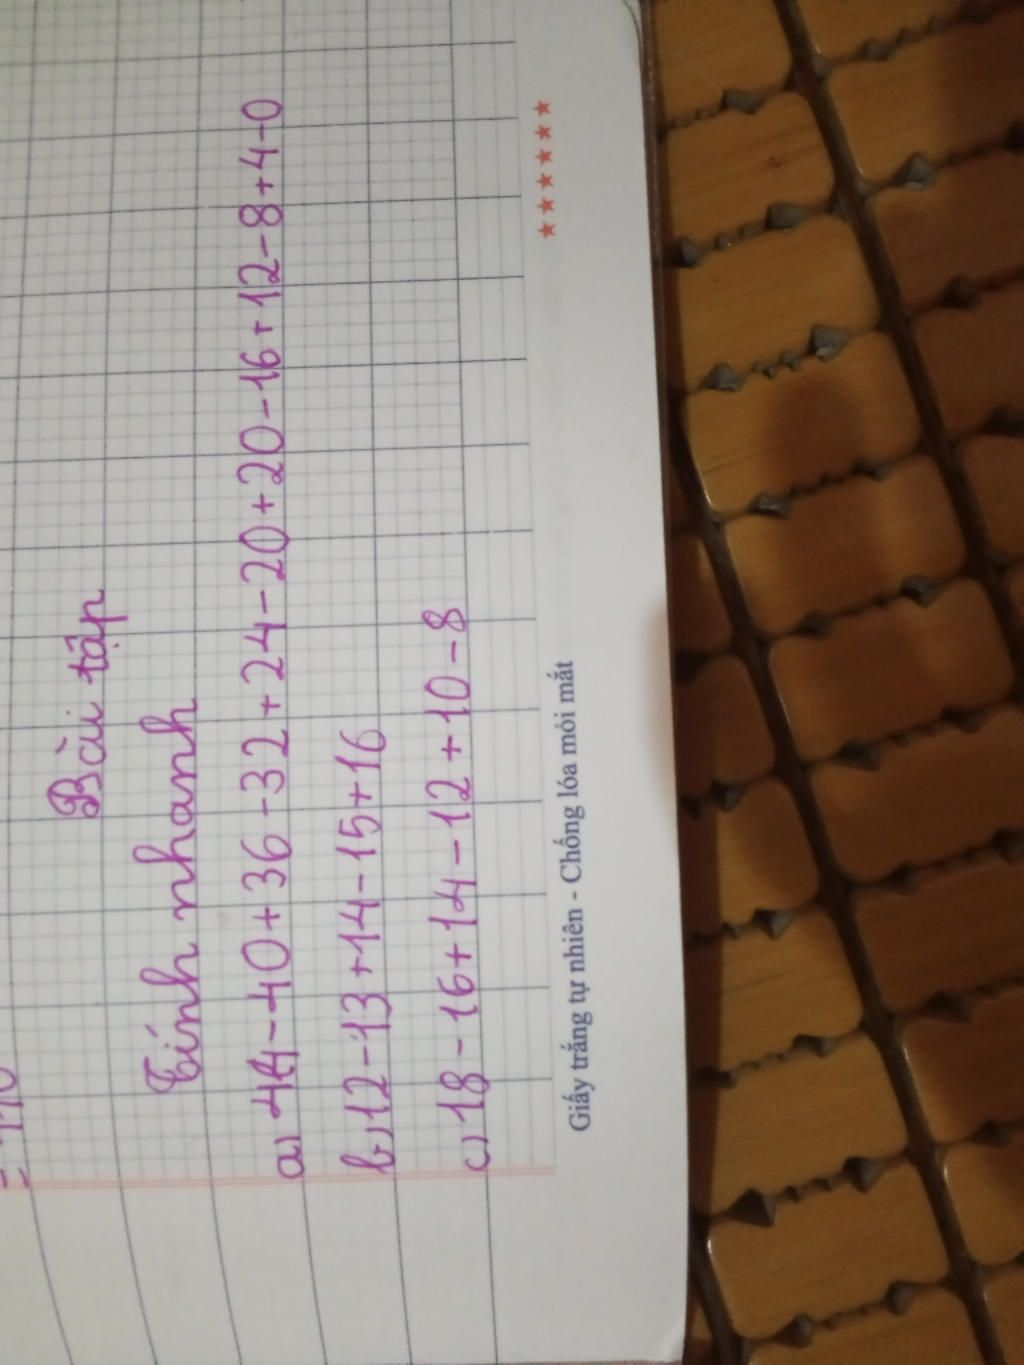 Bài tập
Tính nhanh
a, 44-40+36-32+24-20+20-16+12-8+4-0
b, 12-13+14-15+16
c, 18-16+14-12+10-8
★★★★★★
Giấy trắng tự nhiên - Chống lóa mỏi mắt